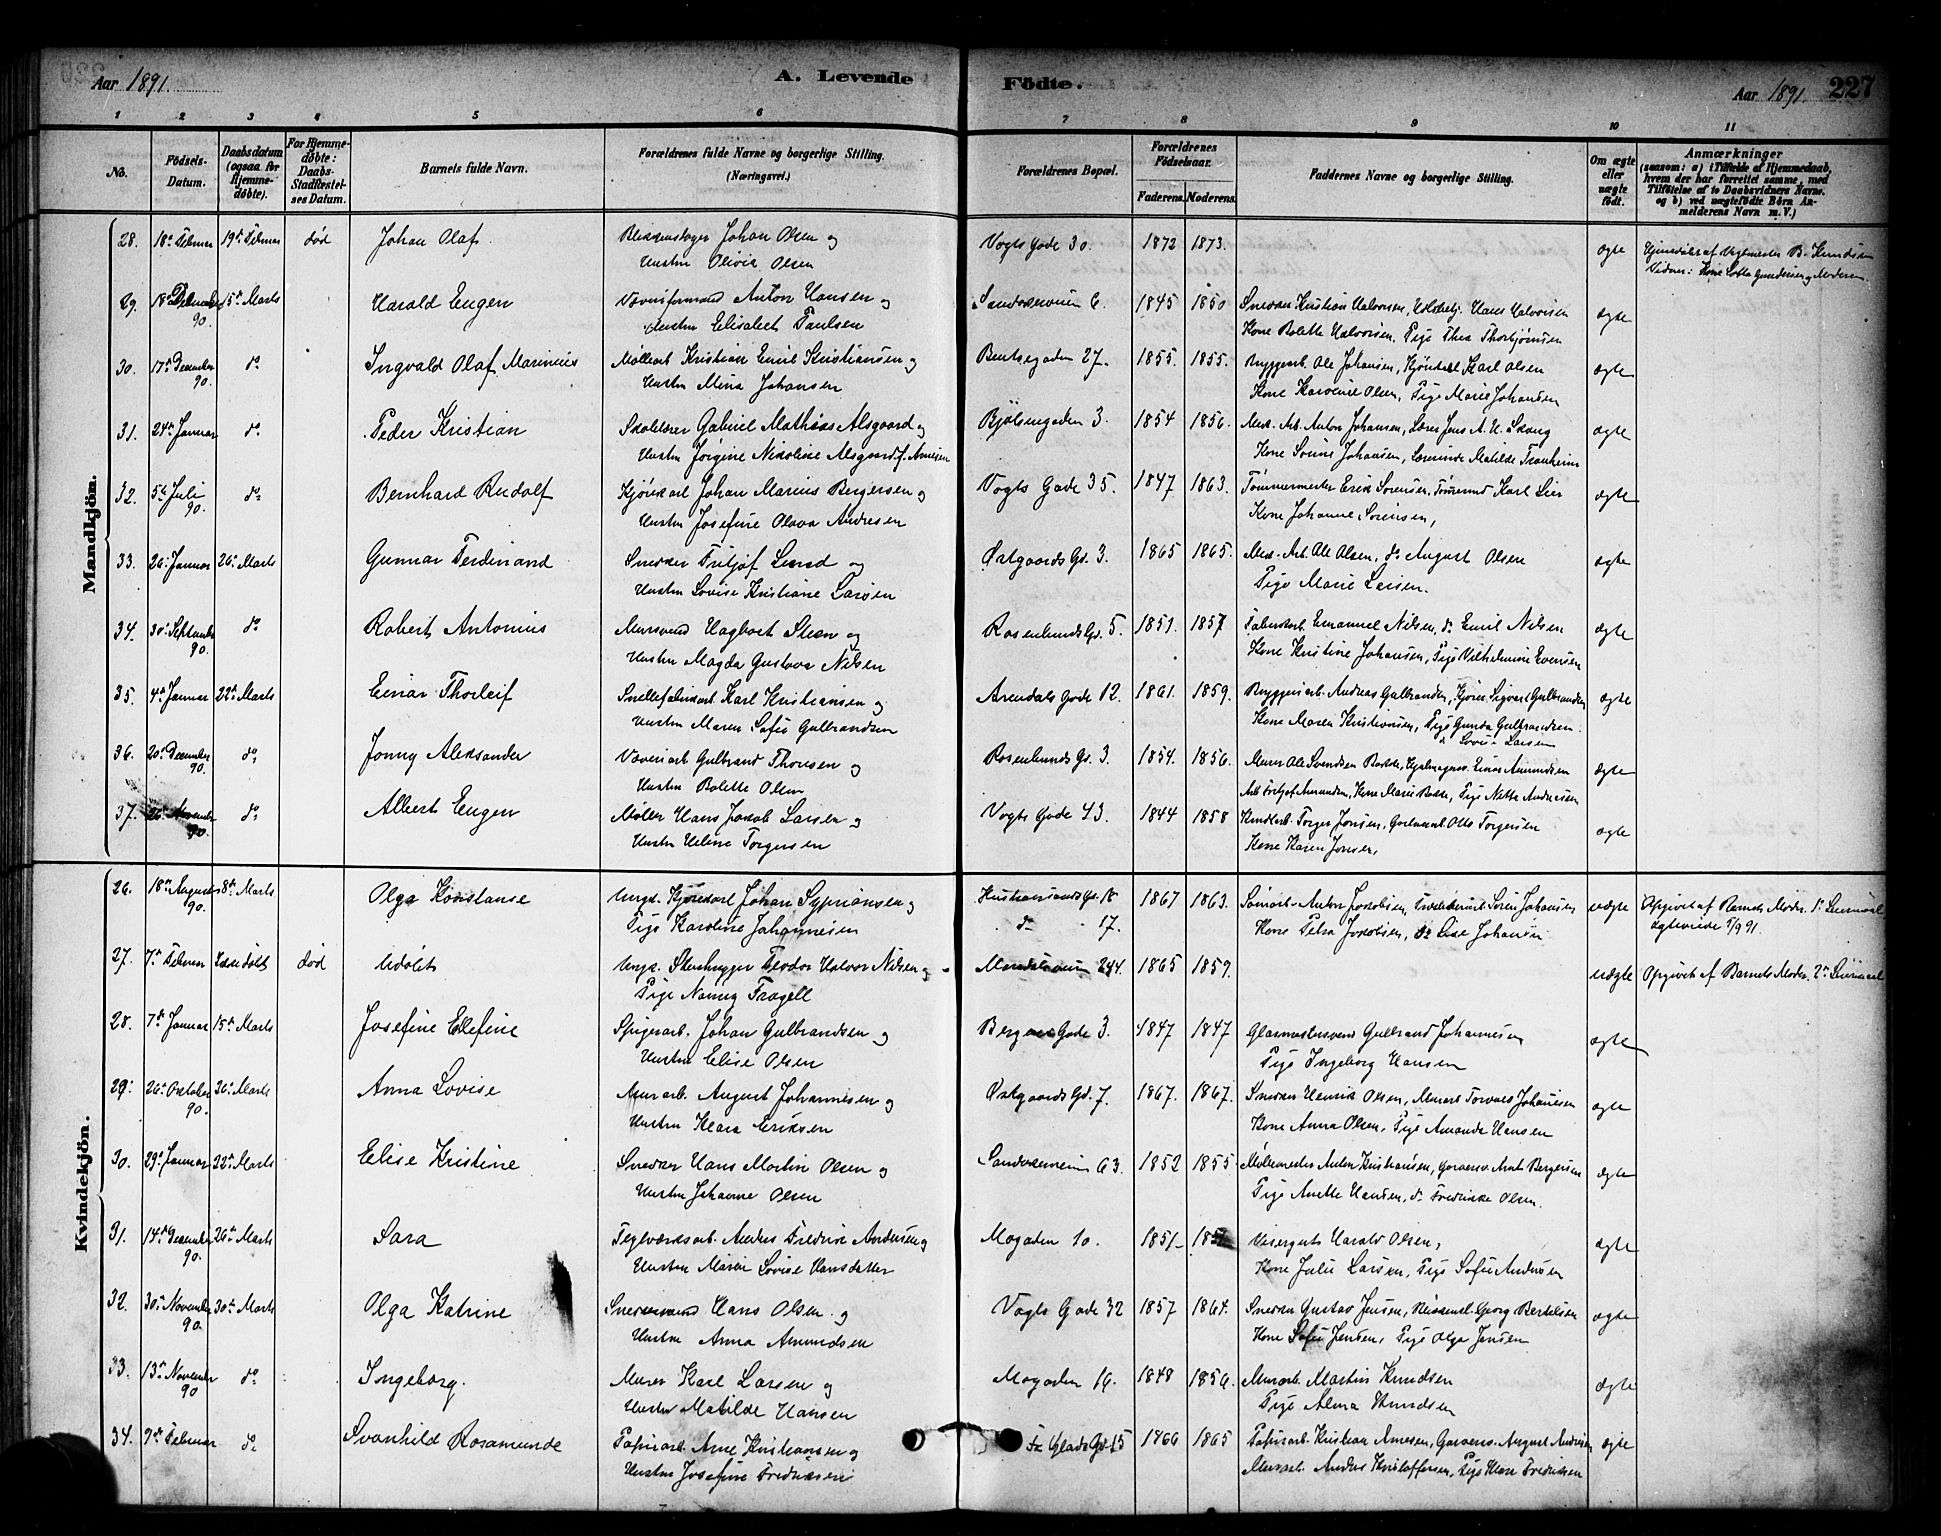 Aar 1891.
A. Levende
Födte.
Aar 1891.
227
1 2 3 4 5 6 7 8 9 10 11
No.
Födsels-
Datum.
Daabsdatum
(ogsaa for
Hjemme-
döbte).
For Hjemme-
döbte:
Daabs-
Stadfæstel-
ses Datum.
Barnets fulde Navn.
Forældrenes fulde Navne og borgerlige Stilling.
(Næringsvei.)
Forældrenes Bopæl.
Forældrenes
Födselsaar.
Faderens.
Moderens.
Faddernes Navne og borgerlige Stilling.
Om ægte
eller
uægte
födt.
Anmærkninger
(saasom: a) i Tilfælde af Hjemmedaab,
hvem der har forrettet samme, med
Tilföielse af to Daabsvidners Navne,
og b) ved uægtefödte Börn An-
melderens Navn m. V.)
Mandkjön.
28. 18de Februar 19de Februar død Johan Olaf. Johan Olsen og Vogts Gade 30. 1872 1873. ægte Hjemdøbt af B. Knudsen
Hustru Olivia Olsen Vidner: Kone Lotte Gundersen og Moderen
29. 18de December 15de Marts Harald Eugen Anton Hansen og 6. 1845 1850 Snedker Kristian Halvorsen, Hans Halvorsen ægte
90. Hustru Elisabet Paulsen Kone Bolette Halvorsen, Pige Thea Thorbjørnsen
30. 17de December do Ingvald Olaf Marinius Møllearb. Kristian Emil Kristiansen og Bentsegaden 27. 1855. 1855. Bryggeriarb. Ole Johansen, Kjørekarl Karl Olsen ægte
90. Hustru Mina Johansen Kone Karoline Olsen, Pige Marie Johansen
31. 24de Januar do Peder Kristian Skolelærer Gabriel Mathias Alsgaard og Bjølsengaden 3. 1854 1856. Mek. Arb. Anton Johansen, Lærer Jens A. U. Skaug ægte
Hustru Jørgine Nikoline Alsgaard f. Arnesen Kone Sorine Johansen, Lærerinde Matilde Tranheim
32. 5te Juli do Bernhard Rudolf Kjørekarl Johan Marius Bergersen og Vogts Gade 35. 1847 1863. Tømmermester Erik Sørensen, Karl Lier ægte
90. Hustru Josefine Olava Andresen Kone Johanne Sørensen,
33. 26de Januar 26de Marts Gunnar Ferdinand Snedker Fritjof Lund og Østgaards Gd. 3. 1865 1865. Mek. Arb. Ole Olsen, do August Olsen ægte
Hustru Lovise Kristiane Larsen Pige Marie Larsen.
34. 30te September do Robert Antonius Murersvend Hagbart Steen og Rosenlunds Gd. 5. 1851. 1857 Fabrikarb. Emanuel Nilsen, do Emil Nilsen ægte
90. Hustru Magda Gustava Nilsen Kone Kristine Johansen, Pige Vilhelmine Evensen
35. 4de Januar 22de Marts Einar Thorleif Karl Kristiansen og Arendals Gade 12. 1861. 1859. Bryggeriarb. Andreas Gulbrandsen, Kjørek. Sigvart Gulbrandsen ægte
Hustru Maren Sofie Gulbrandsen Kone Maren Kristiansen, Pige Gunda Gulbrandsen.
do Lovise Larsen
36. 20de December do Jonny Aleksander Væveriarb Gulbrand Thonsen og Rosenlunds Gd. 3 1854. 1856. Murer Ole Svendsen Bakke, Einar Amundsen ægte
90. Hustru Bolette Olsen Arb. Fritjof Amundsen, Kone Marie Bakke, Pige Nikka Andresen
37. 26de November do Albert Eugen Møller Hans Jakob Larsen og Vogts Gade 43. 1844 1858 Torger Jensen, Otto Torgersen ægte
90. Hustru Heline Torgersen Kone Karen Jensen,
Kvindekjön.
26. 18de August 8de Marts Olga Konstanse Ungk. Kjørekarl Johan Sypriansen og Kristiansunds Gd. 18 1867 1863. Anton Jakobsen, Søren Johansen uægte Opgivet af Barnets Moder. 1ste Leiermaal
90. Pige Karoline Johannesen do 17. Kone Petra Jakobsen, do Lise Johansen Ægteviede 7/9 91.
27. 7de Februar Ikke døbt død Udøbt Ungk. Stenhugger Teodor Halvor Nilsen og 244. 1865 1859. uægte Opgivet af Barnets Moder. 2det Leiermaal
Pige Nanny Fragell
28. 7de Januar 15de Marts Josefine Ellefine Spigerarb. Johan Gulbrandsen og Bergens Gade 3. 1847 1847 Glasmestersvend Gulbrand Johannesen ægte
Hustru Elise Olsen Pige Ingeborg Hansen
29. 26de Oktober 26de Marts Anna Lovise Murarb. August Johannesen og Østgaards Gd. 7. 1867. 1867. Snedker Henrik Olsen, Torvald Johansen ægte
90. Hustru Klara Eriksen Kone Anna Olsen, Pige Amanda Hansen
30. 29de Januar 22de Marts Elise Kristine Snedker Hans Martin Olsen og 63. 1852 1855 Møllemester Anton Kristiansen, Bergersen ægte
Hustru Johanne Olsen Pige Anette Hansen, do Fredrikke Olsen.
31. 14de December 26de Marts Sara Teglværksarb. Anders Fredrik Andersen og Mogaden 10. 1851 Visergut Harald Olsen, ægte
90. Hustru Maren Lovise Hansdatter Kone Julie Larsen, Pige Sofie Andersen
32. 30te November 30te Marts Olga Katrine Snedkersvend Hans Olsen og Vogts Gade 32 1857 1864. Snedker Gustav Jensen, Georg Bertelsen ægte
90. Hustru Anna Amundsen Kone Sofie Jensen, Pige Olga Jensen
33. 13de November do Ingeborg. Murer Karl Larsen og Mogaden 16. 1848 1856. Murarb. Martin Knudsen ægte
90 Hustru Matilde Hansen Pige Alma Knudsen
34. 9de Februar do Svanhild Rosamunde Papirarb. Arne Kristiansen og Fr. Glads Gd. 15 1866 1865 Papirarb. Kristian Arnesen, August Andersen ægte
Hustru Josefine Fredriksen Anders Kristoffersen, Pige Klara Fredriksen